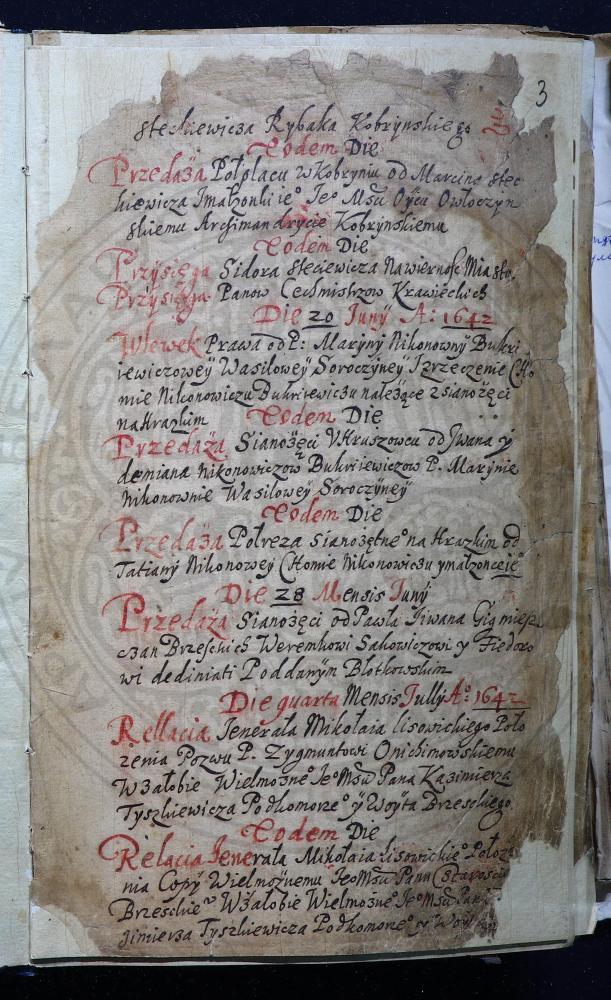 3
Steckiewicza Rybaka Kobrynskiego
Eodem Die
Przedaża Połplacu w Kobryniu od Marcina Stec
kiewicza Imałzonki ie° Je° Msci Oycu Owłoczyn
skiemu Archimandrycie Kobrynskiemu
Eodem Die
Przysięga Sidora Steciewicza Nawiernosc Miasto.
Przysięga Panow Cechmistrzow Krawieckich
Die 20 Junÿ A: 1642
Wlewek Prawa od P: Marÿnÿ Nikonownÿ Bukri
iewiczoweÿ Wasiloweÿ Soroczÿneÿ I zrzeczenie Cho
mie Nikonowiczu Bukriiewiczu należące z sianożęci
na Hrazkim Eodem Die
Przedaża Sianożęci V Hruszowcu od Jwana ÿ
demiana Nikonowiczow Bukriiewiczow P. Marÿnie
Nikonownie Wasiloweÿ Soroczÿneÿ
Eodem Die
Przedaża Połreza Sianożętne° na Hrazkim od
Tatianÿ Nikonowey Chomie Nikonowiczu ÿ małzonce ie°
Die 28 Mensis Junÿ
Przedaża Sianożęci od Pawła Jiwana
czan Brzeskich Weremkowi Sakowiczowi y Fiedoro
wi dediniati Poddanÿm Błotkowskim
Die quarta Mensis Jullÿ A°: 1642
Rellacia Jenerała Mikołaia Lisowickiego Poło
żenia Pozwu P. Zygmuntowi Onichimowskiemu
W Załobie Wielmożne° Je° Msci Pana Kazimierza
Tyszkiewicza Podkomorze° ÿ Woÿta Brzeskiego
Eodem Die
Relacia Jenerała Mikołaia Lisowickie° Położe
nia Copÿ Wielmożnemu Je° Msci Panu Staroscie
Brzeskie° W Załobie Wielmożne° Je° Msci Pana
zimierza Tyszkiewicza Podkomorze° ÿ Woÿ